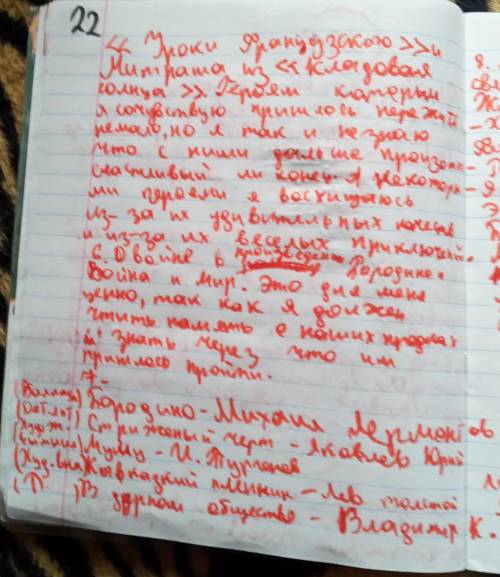 22
« Уроки Французского »и
Митраша из «Кладовая
солнца ». Героям которым
я сочувствую пришлось пережи
немало, но я так и не знаю
что с ними дальше произош-
счастливый ли конец. Я некотори-
ми героями я восхищаюсь
из-за их удивительных качеств
и из-за их веселых приключений.
6. О войне в произведении Бородино.
Война и Мир. Это для меня
ценно, так как я должен
чтить память о наших предках
и знать через что им
пришлось пройти.
7.
Бородино - Михаил Лермонтов
Стриженый черт - Яковлев Юрий
Муму - И. Тургенев
Кавказкий пленник - Лев толстой
В дурном обществе - Владимир К.